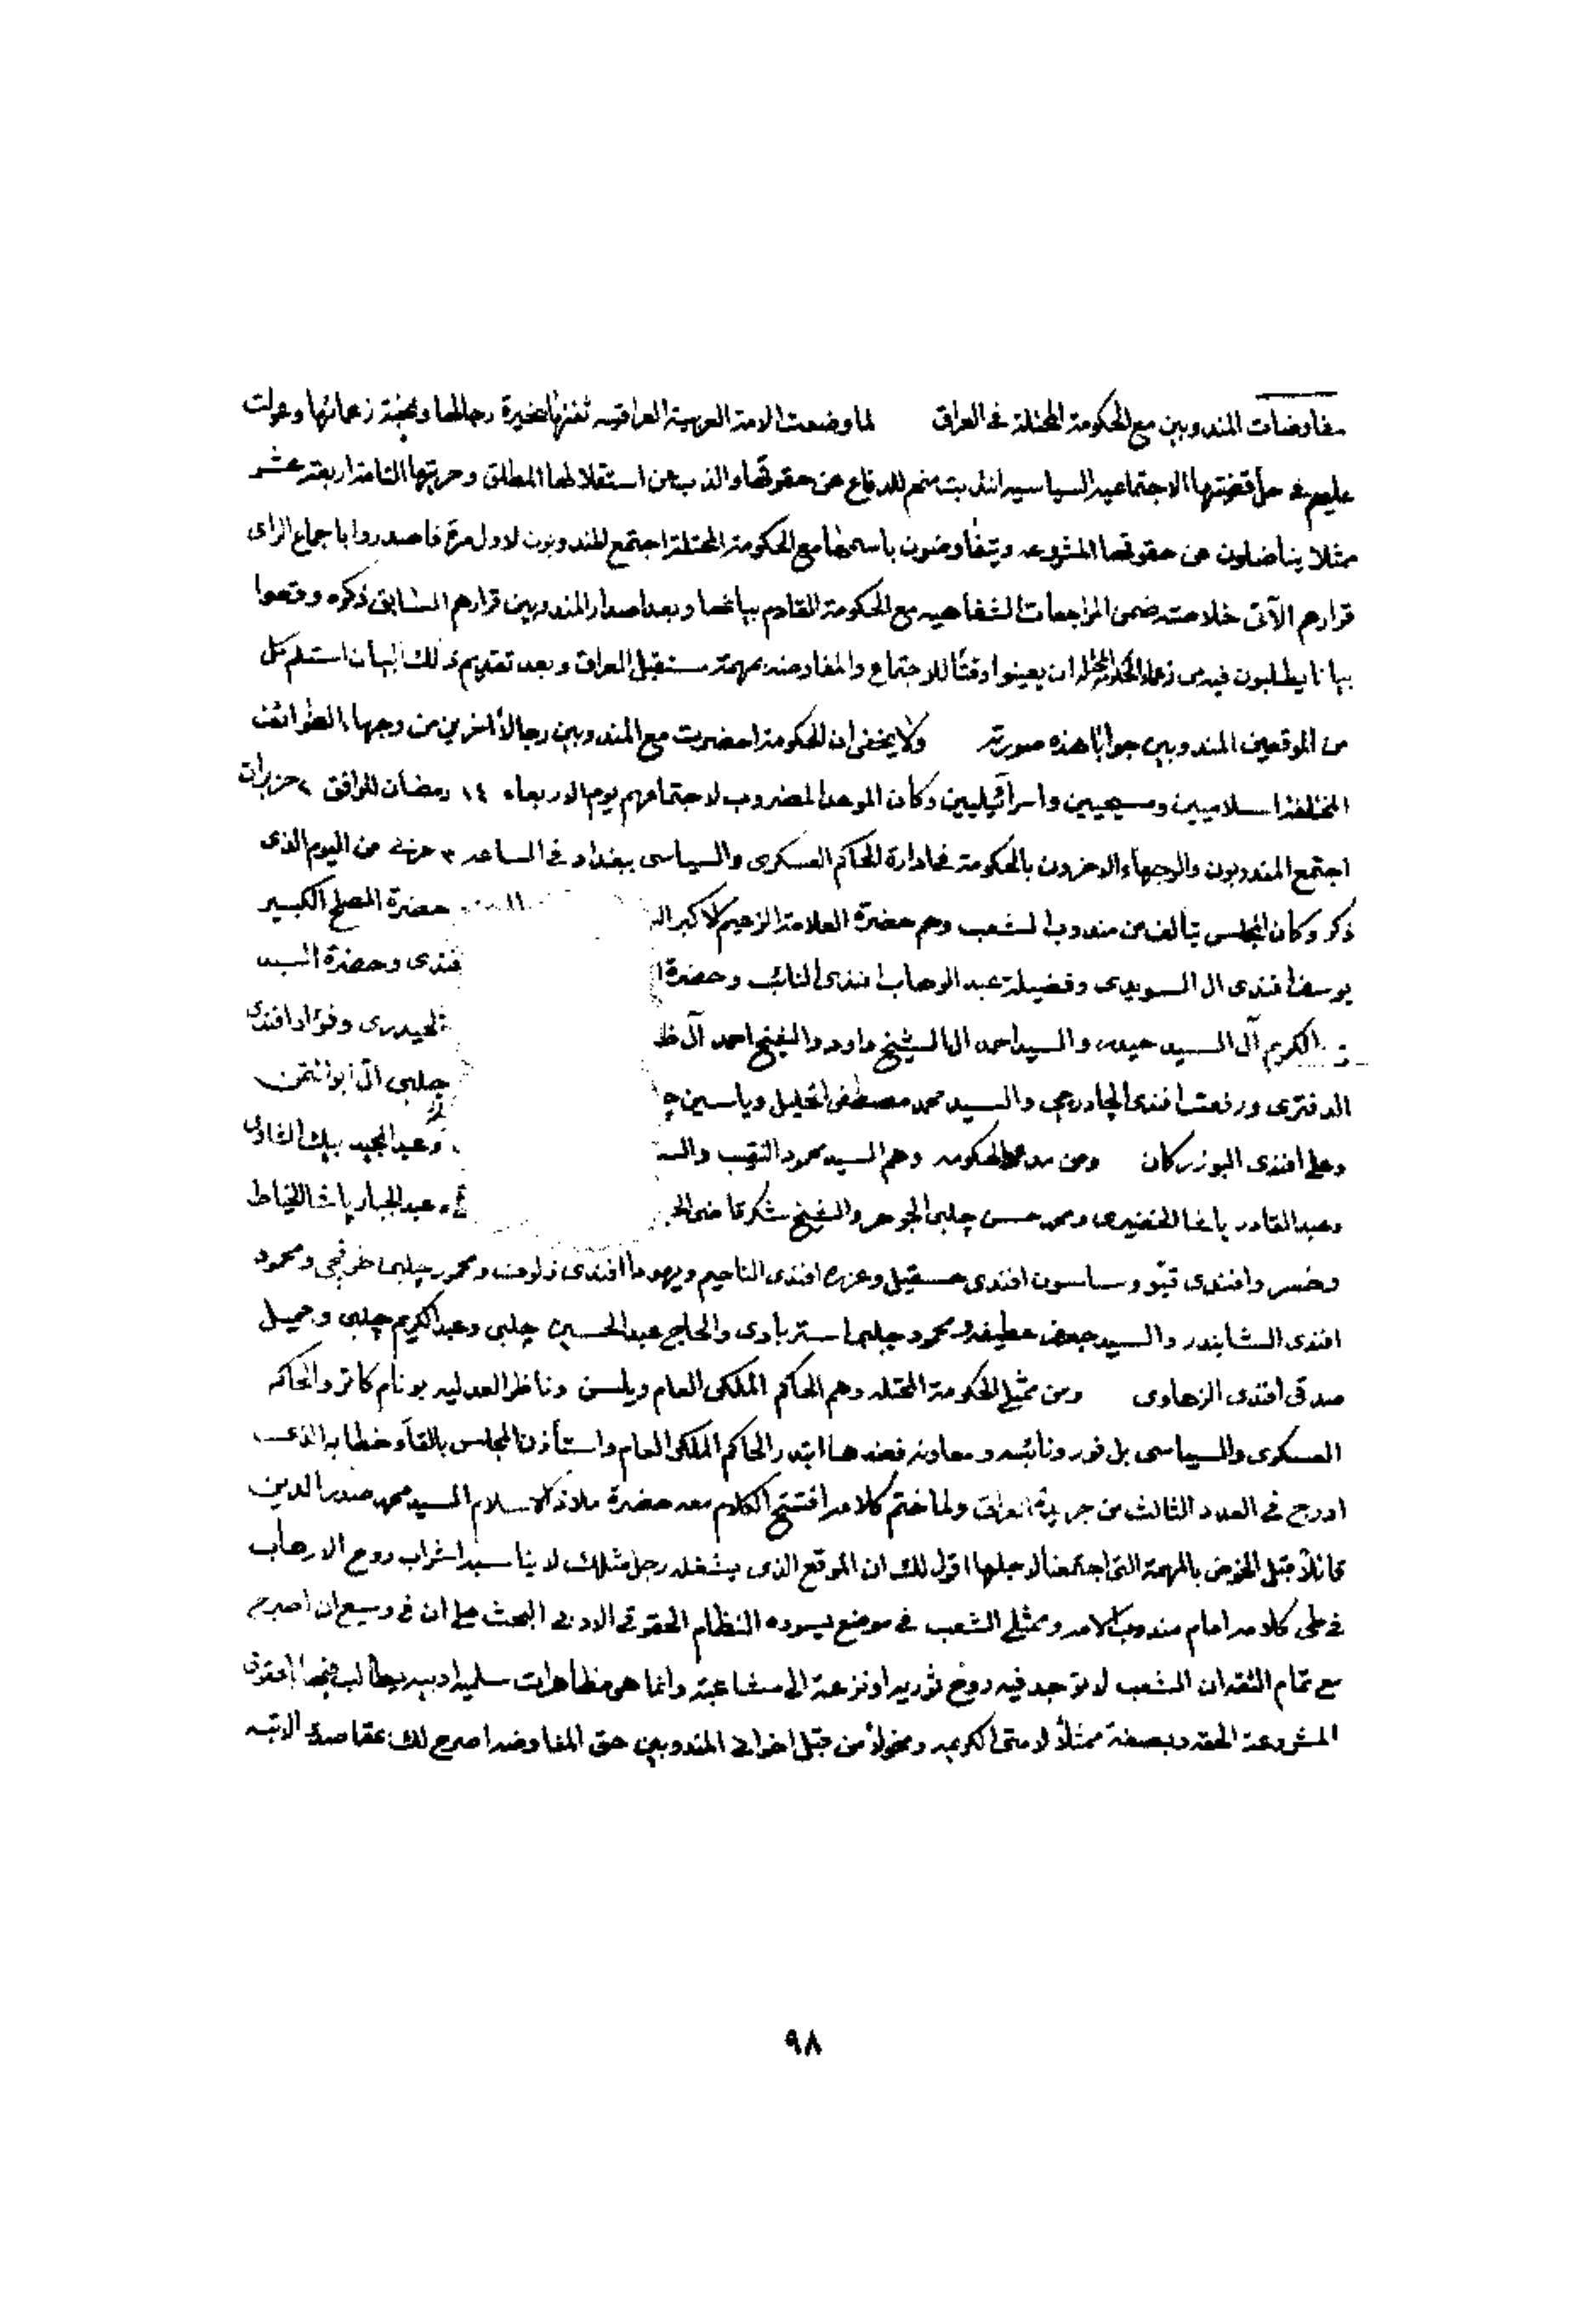 مفاوضات المندوبين مع الحكومة المحتلة في العراق لما وضعت الامة العربية العراقية ثقتها بخيرة رجالها ونخبة زعمائها وعولت
عليهم في حل قضيتها الاجتماعية السياسية انتدبت منهم للدفاع عن حقوقها والذب عن استقلالها المطلق وحريتها التامة اربعة عشر
ممثلا يناضلون عن حقوقها المشروعه ويتفاوضون باسمها مع الحكومة المحتلة اجتمع المندوبون لاول مرة فاصدروا باجماع الرأى
قرارهم الآتى خلاصته ضمن المراجعات الشفاهيه مع الحكومة القادم بيانها وبعد اصدار المندوبين قرارهم السابق ذكره وقعوا
بيانا يطلبون فيه من زعماء الحكومة المحتلة ان يعينوا وقتًا للاجتماع والمفاوضه بمهمة مستقبل العراق وبعد تقديم ذلك البيان استلم كل
من الموقعين المندوبين جوابا هذه صورته ولا يخفى ان الحكومة احضرت مع المندوبين رجالا آخرين من وجهاء الطوائف
المختلفة اسلاميين ومسيحيين واسرائيليين وكان الموعد المضروب لاجتماعهم يوم الاربعاء ١٤ رمضان الموافق ٢ حزيران
اجتمع المندوبون والوجهاء الاخرون بالحكومة في ادارة الحاكم العسكرى والسياسى ببغداد في الساعه ٣ من اليوم الذى
ذكر وكان المجلس يتألف من مندوبى الشعب وهم حضرة العلامة الزعيم الاكبر حضرة المصلح الكبير
يوسف افندى ال السويدى وفضيلة عبد الوهاب افندى النائب وحضرة فندى وحضرة السيد
الكريم آل السيد حيدر والسيد احمد ال الشيخ داود والشيخ احمد آل ظا الحيدرى وفؤاد افندى
الدفترى ورفعت افندى الچادرجى والسيد محمد مصطفى الخليل وياسين چلبى ال ابو التمن
وعلى افندى البوزركان ومن مدعوى الحكومه وهم السيد محمود النقيب والسـ وعبد المجيد بيك الشاوى
وعبد القادر پاشا الخضيرى ومحمد حسن چلبى الجوهر والشيخ شكر قاضى عبد الجبار پاشا الخياط
وخسرو افندى قيو وساسون افندى حسقيل وعزره افندى الناحيم ويهودا افندى زلوف ومحمود چلبى ومحمود
افندى الشابندر والسيد جعفر عطيفه ومحمود چلبى استربادى والحاج عبد الحسين چلبى وعبد الكريم چلبى وجميل
صدقى افندى الزهاوى ومن ممثلى الحكومة المحتله وهم الحاكم الملكى العام ويلسن وناظر العدليه بونام كاتر والحاكم
العسكرى والسياسى بلفور ونائبه ومعاونه فعندها ابتدر الحاكم الملكى العام واستأذن المجلس بالقاء خطابه الذى
ادرج في العدد الثالث من جريدة العراق ولما ختم كلامه افتتح الكلام معه حضرة ملاذ الاسلام السيد محمد صدر الدين
قائلاً قبل الخوض بالمهمة التى اجتمعنا لاجلها اقول لك ان الموقع الذى يشغله رجل مثلك لا يناسبه اشراب روح الارهاب
في طى كلامه امام مندوبى الامه وممثلى الشعب في موضع يسوده النظام الحقوقى الادبى البحث على ان في وسعى ان اصرح
مع تمام الثقه ان الشعب لا توجد فيه روح ثوريه او نزعة الى مشاغبة وانما هى مظاهرات سلميه ادبيه يطالب فيها بحقوق
المشروعة الحقه وبصفة ممثلاً لامتى الكريمه ومخولاً من قبل اخوانى المندوبين حق المفاوضه اصرح لك بمقاصدى الاتيه
٩٨